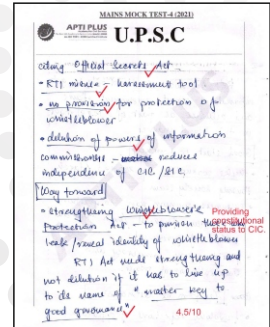 MAINS MOCK TEST-4 (2021)
APTI PLUS
U.P.S.C
citing Official Secrets Act
• RTI misuse - harassment tool
• no provision for protection of
whistleblower
• dilution of powers of information
commissioners - reduces
independence of CIC/SIC.
Way forward
• strengthening whistleblower's
Providing
constitutional
status to CIC.
protection Act - to punish that
leak/reveal identity of whistleblower
RTI Act needs strengthening and
not dilution if it has to live up
to its name of "master key to
good governance"
4.5/10